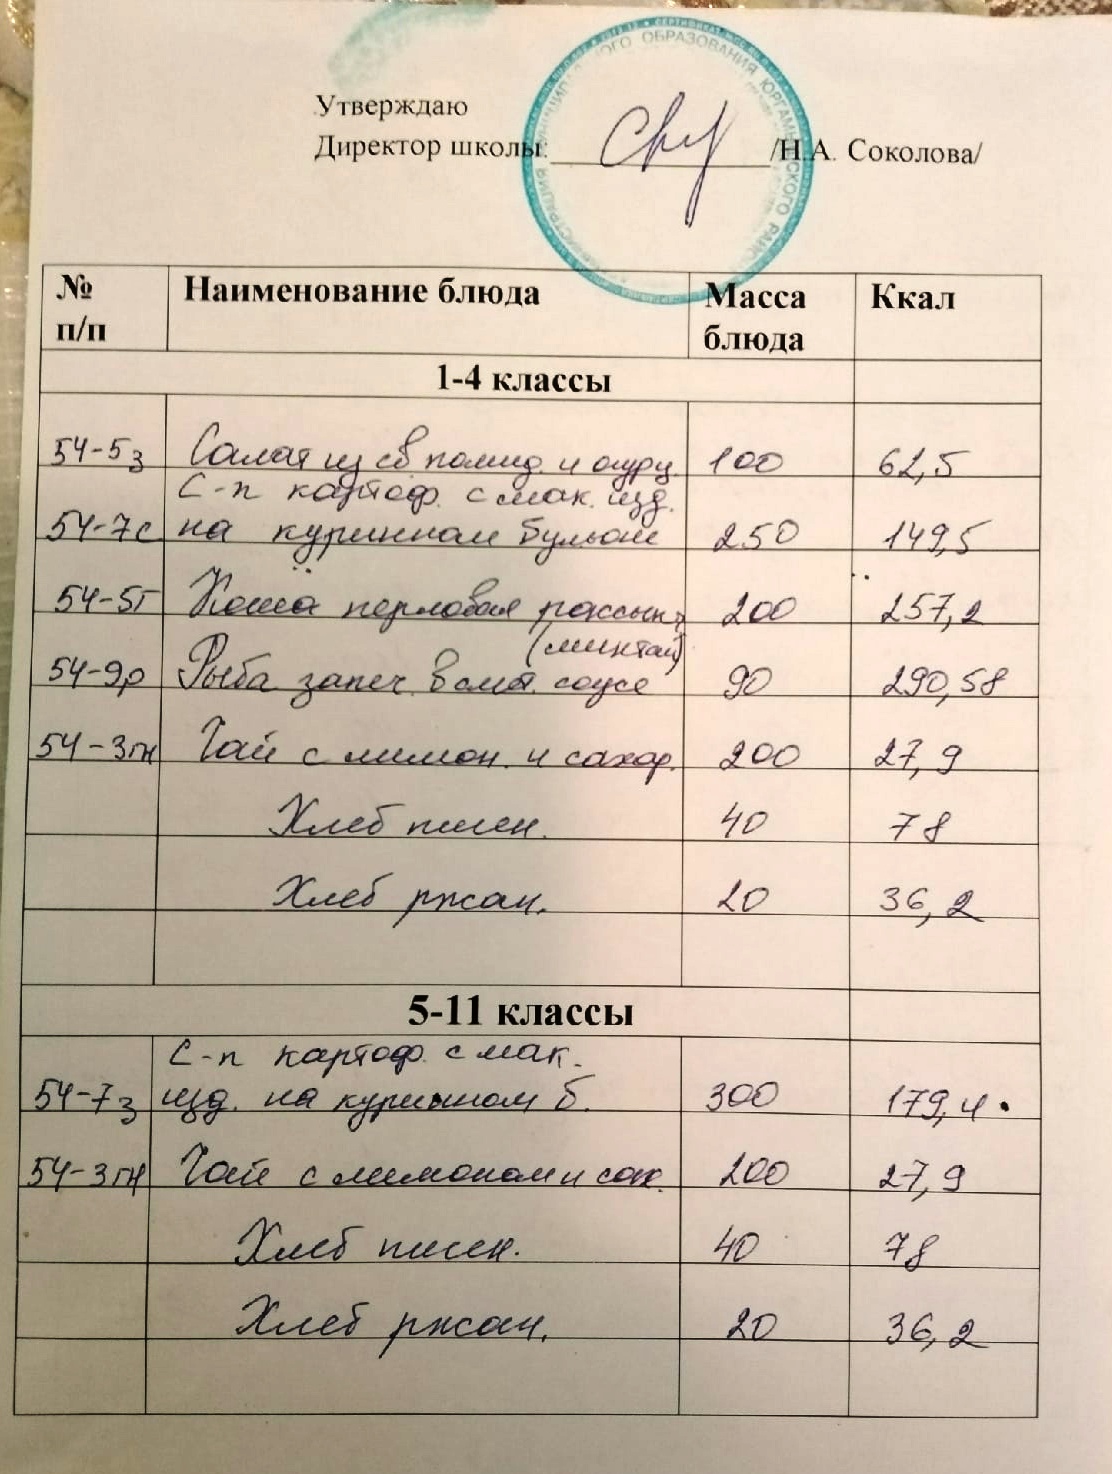 Утверждаю
Директор школы: /Н.А. Соколова/
ОБРАЗОВАНИЯ ЮРГАМЫШСКОГО
№ п/п Наименование блюда Масса блюда Ккал
1-4 классы
54-5з Салат из св помид. и огурц. 100 62,5
С-п картоф. с мак. изд.
54-7с на курином бульоне 250 149,5
54-5г Каша перловая рассыпч 200 257,2
(минтай)
54-9р Рыба запеч. в смет. соусе 90 290,58
54-3гн Чай с лимон. и сахар. 200 27,9
Хлеб пшен. 40 78
Хлеб ржан. 20 36,2
5-11 классы
С-п картоф. с мак.
54-7з изд. на курином б. 300 179,4
54-3гн Чай с лимоном и сах. 200 27,9
Хлеб пшен. 40 78
Хлеб ржан. 20 36,2